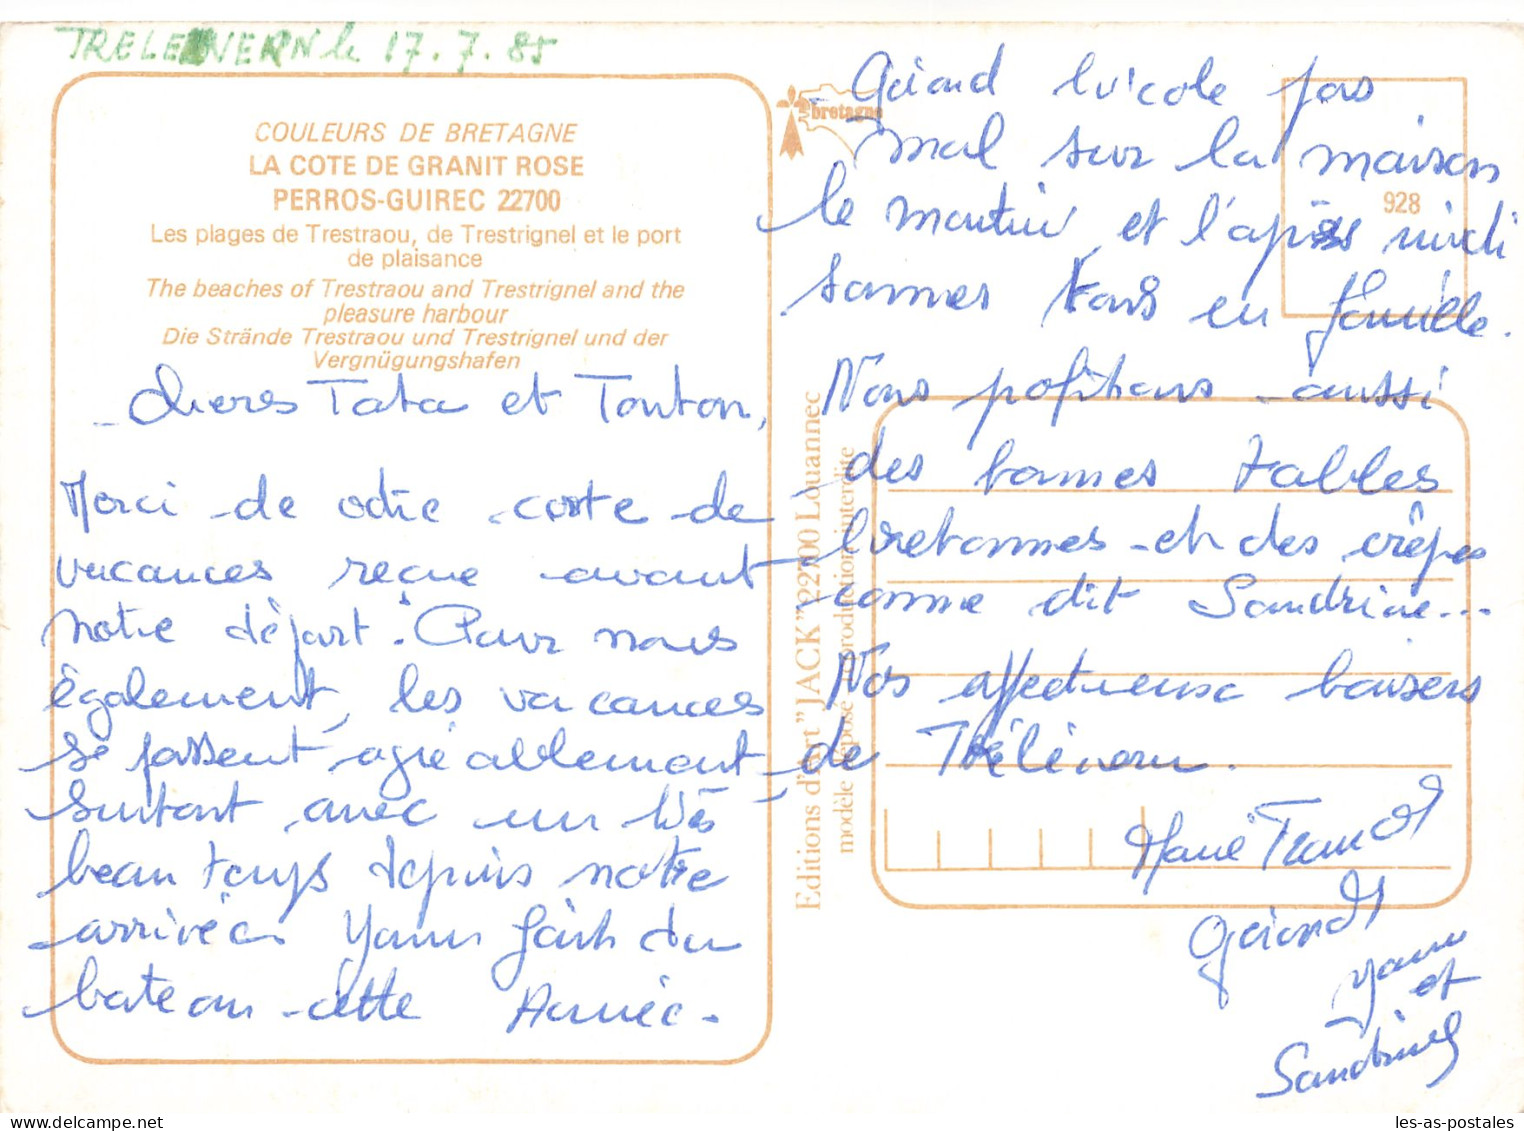 TRELEVERN le 17.7.85
COULEURS DE BRETAGNE
LA COTE DE GRANIT ROSE
PERROS-GUIREC 22700
Les plages de Trestraou, de Trestrignel et le port
de plaisance
The beaches of Trestraou and Trestrignel and the
pleasure harbour
Die Strände Trestraou und Trestrignel und der
Vergnügungshafen
Cheres Tata et Tonton,
Merci de votre carte de
vacances reçue avant
notre départ. Pour nous
également, les vacances
se passent agréablement
surtout avec un très
beau temps depuis notre
arrivée. Yann fait du
bateau cette Année.
Editions d'Art "JACK" 22700 Louannec
modèle déposé reproduction interdite
bretagne
928
Gérard bricole pas
mal sur la maison
le matin et l'après midi
sommes tous en famille.
Nous profitons aussi
des bonnes tables
bretonnes et des crêpes
comme dit Sandrine...
Nos affectueux baisers
de Trélévern.
Gérard
Yann
et
Sandrine
les-as-postales